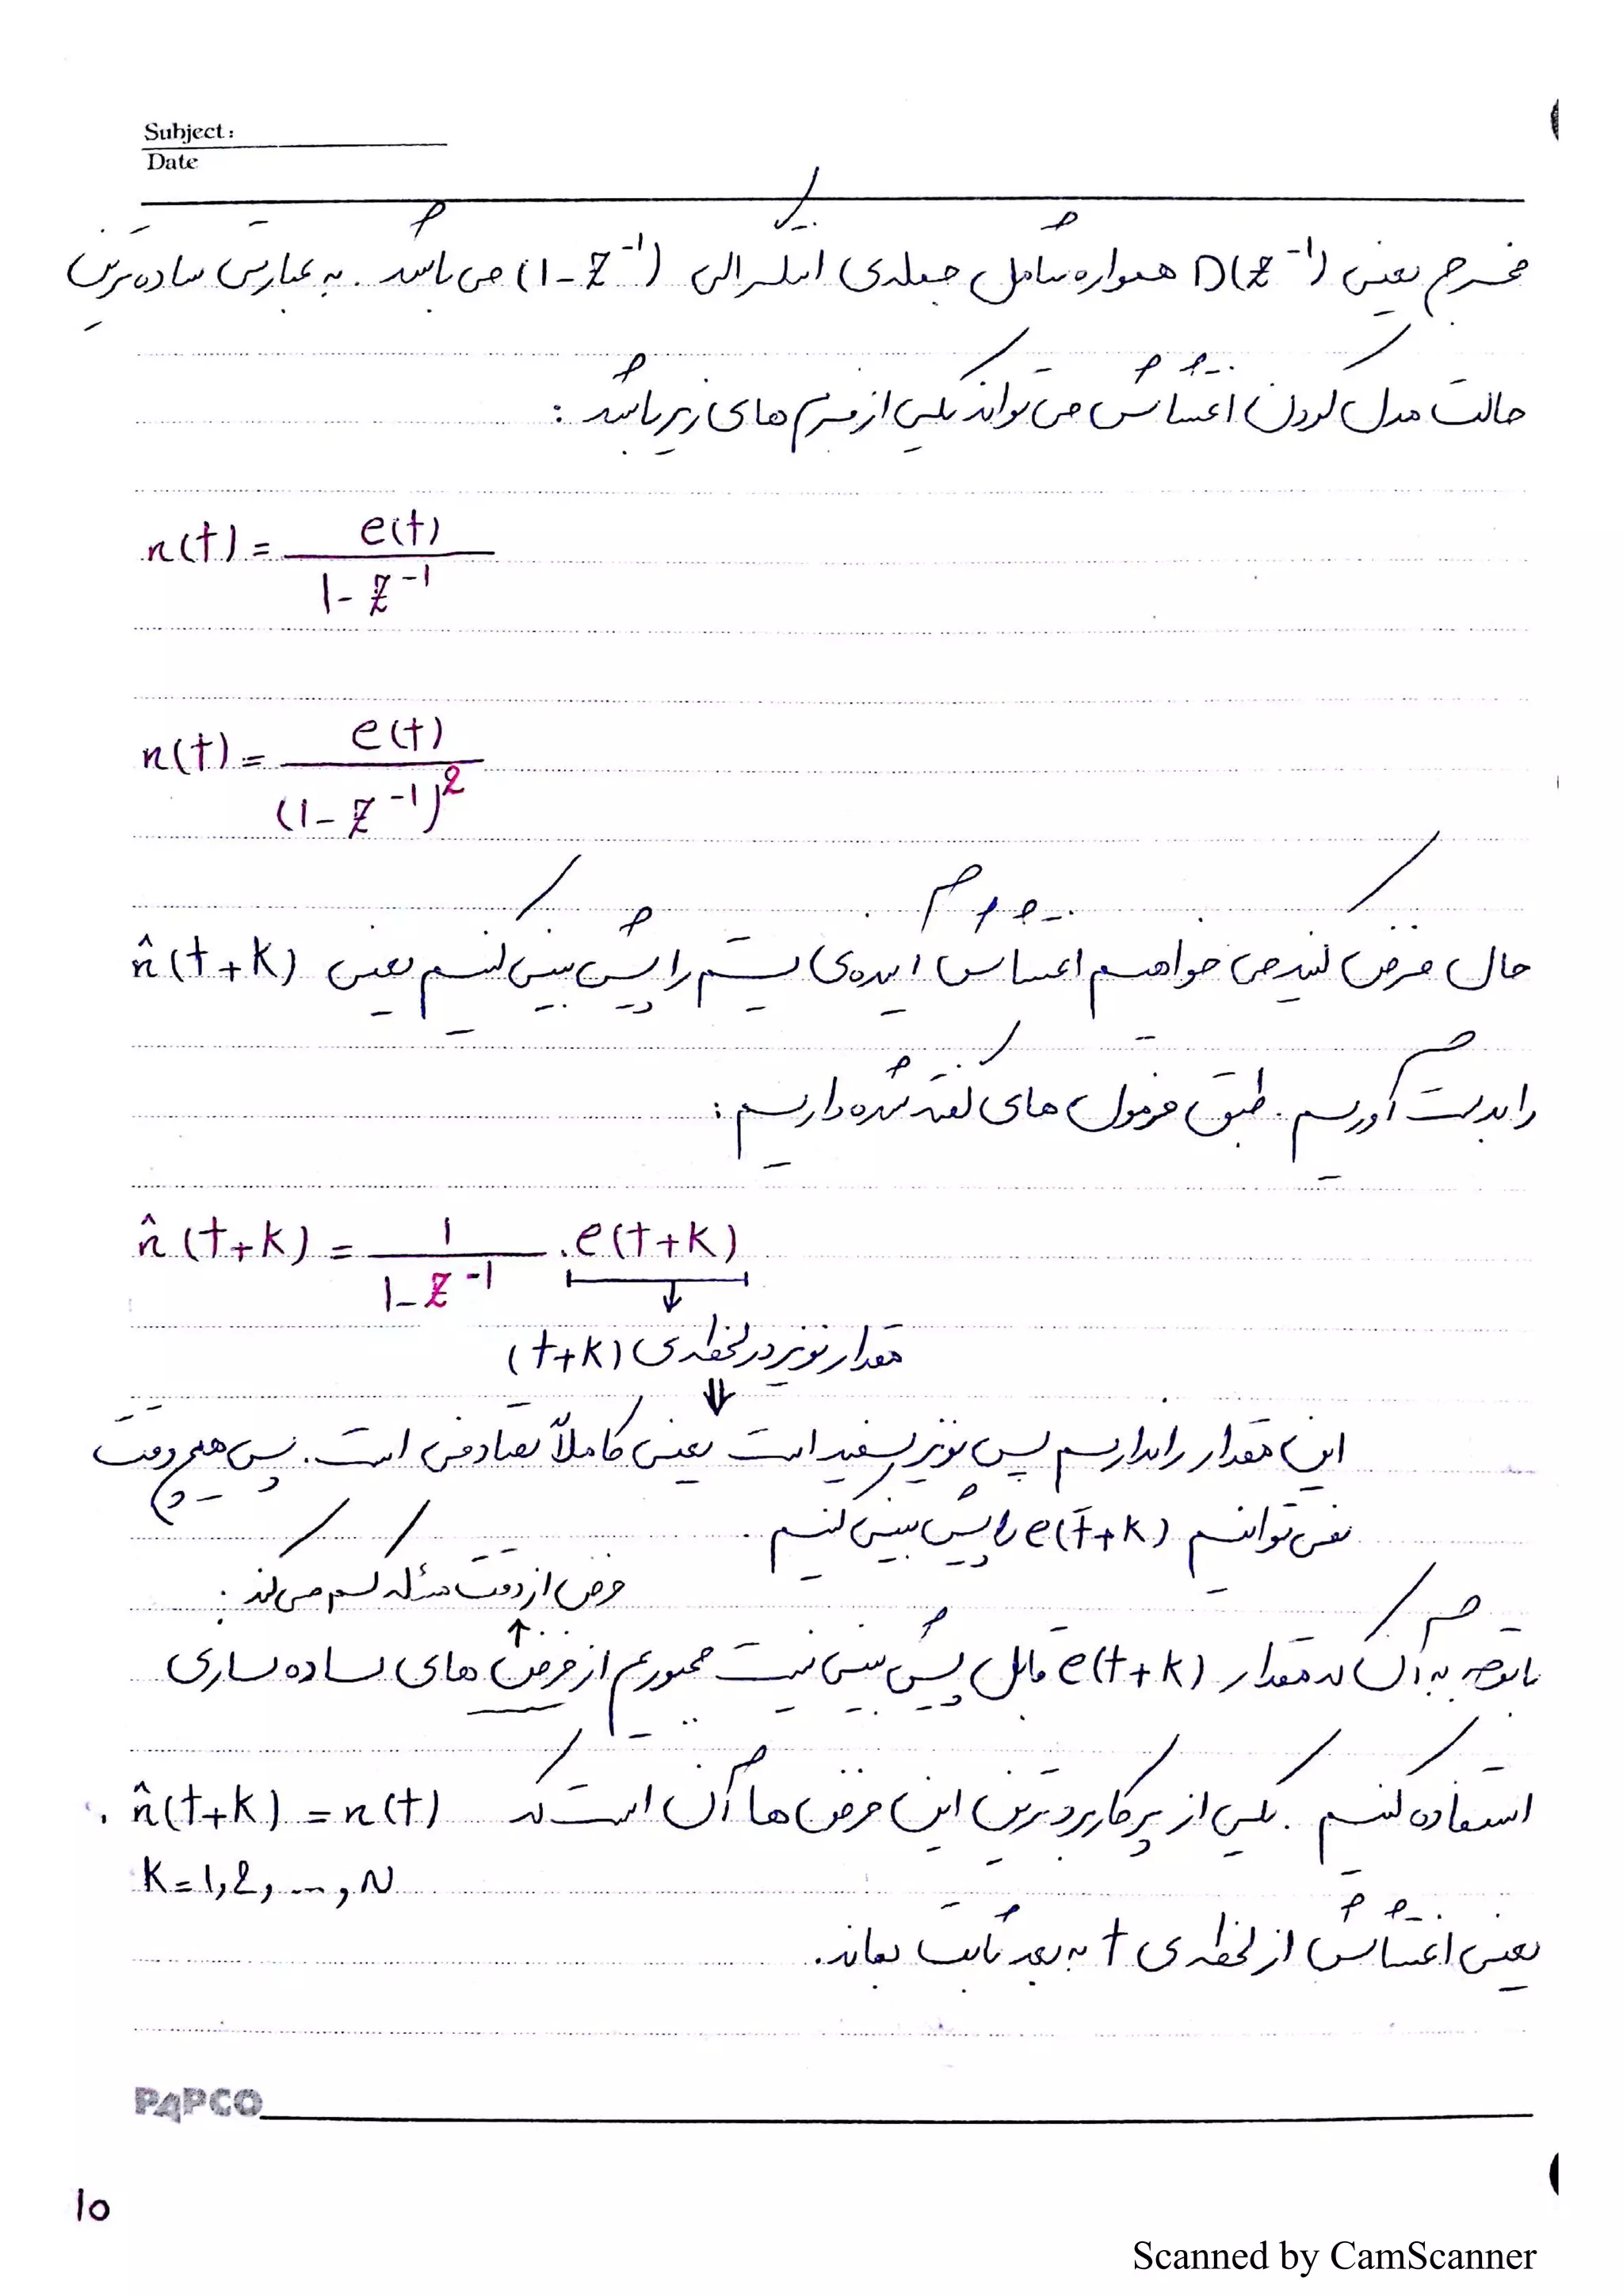 Subject:
Date
مخرج یعنی D(z⁻¹) همواره شامل جمله‌ی انتگرالی (1-z⁻¹) می باشد. به عبارتی ساده ترین
حالت مدل کردن اغتشاش می تواند یکی از فرم های زیر باشد:
n(t) = e(t) / 1-z⁻¹
n(t) = e(t) / (1-z⁻¹)²
حال فرض کنید می خواهیم اغتشاش آینده‌ی سیستم را پیش بینی کنیم یعنی n̂(t+k)
را بدست آوریم. طبق فرمول های گفته شده داریم:
n̂(t+k) = 1 / 1-z⁻¹ . e(t+k)
مقدار نویز در لحظه‌ی (t+k)
⇓
این مقدار را نداریم پس نویز سفید است یعنی کاملاً تصادفی است. پس هیچ وقت
نمی توانیم e(t+k) را پیش بینی کنیم.
فرض از دقت مسئله کم می کند.
با توجه به آن که مقدار e(t+k) قابل پیش بینی نیست مجبوریم از فرض های ساده سازی
استفاده کنیم. یکی از پرکاربردترین این فرض ها آن است که n̂(t+k) = n(t).
k=1,2,...,N
یعنی اغتشاش از لحظه‌ی t به بعد ثابت بماند.
PAPCO
10
Scanned by CamScanner